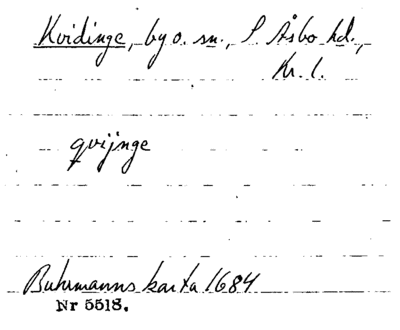 Kvidinge, by o. sn., S. Åsbo hd.,
Kr. l.
qvijnge
Buhrmanns karta 1684
Nr 5518.